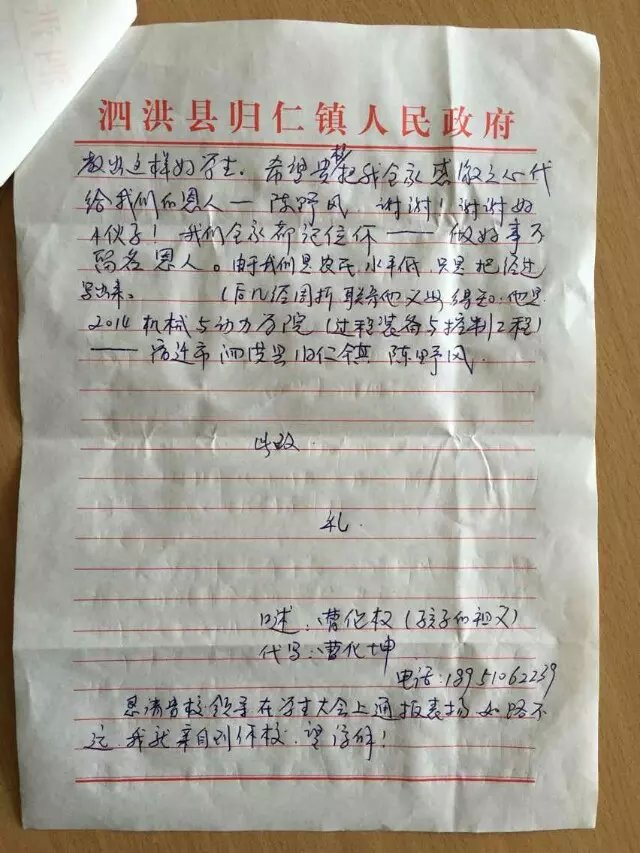 泗洪县归仁镇人民政府
教出这样好学生。希望贵校把我全家感激之心代
给我们的恩人——陈野风。谢谢!谢谢好
小伙子!我们全家都记住你——做好事不
留名恩人。由于我们是农民,水平低,只是把经过
写出来。(后几经周折联系他父母得知:他是
2014机械与动力学院(过程装备与控制工程)
——宿迁市泗洪县归仁镇 陈野风.
此致.
礼.
口述:曹化权(孩子的祖父)
代写:曹化坤
电话:18951062239
恳请贵校领导在学生大会上通报表扬 如路不
远 我就亲自到你校.望谅解!